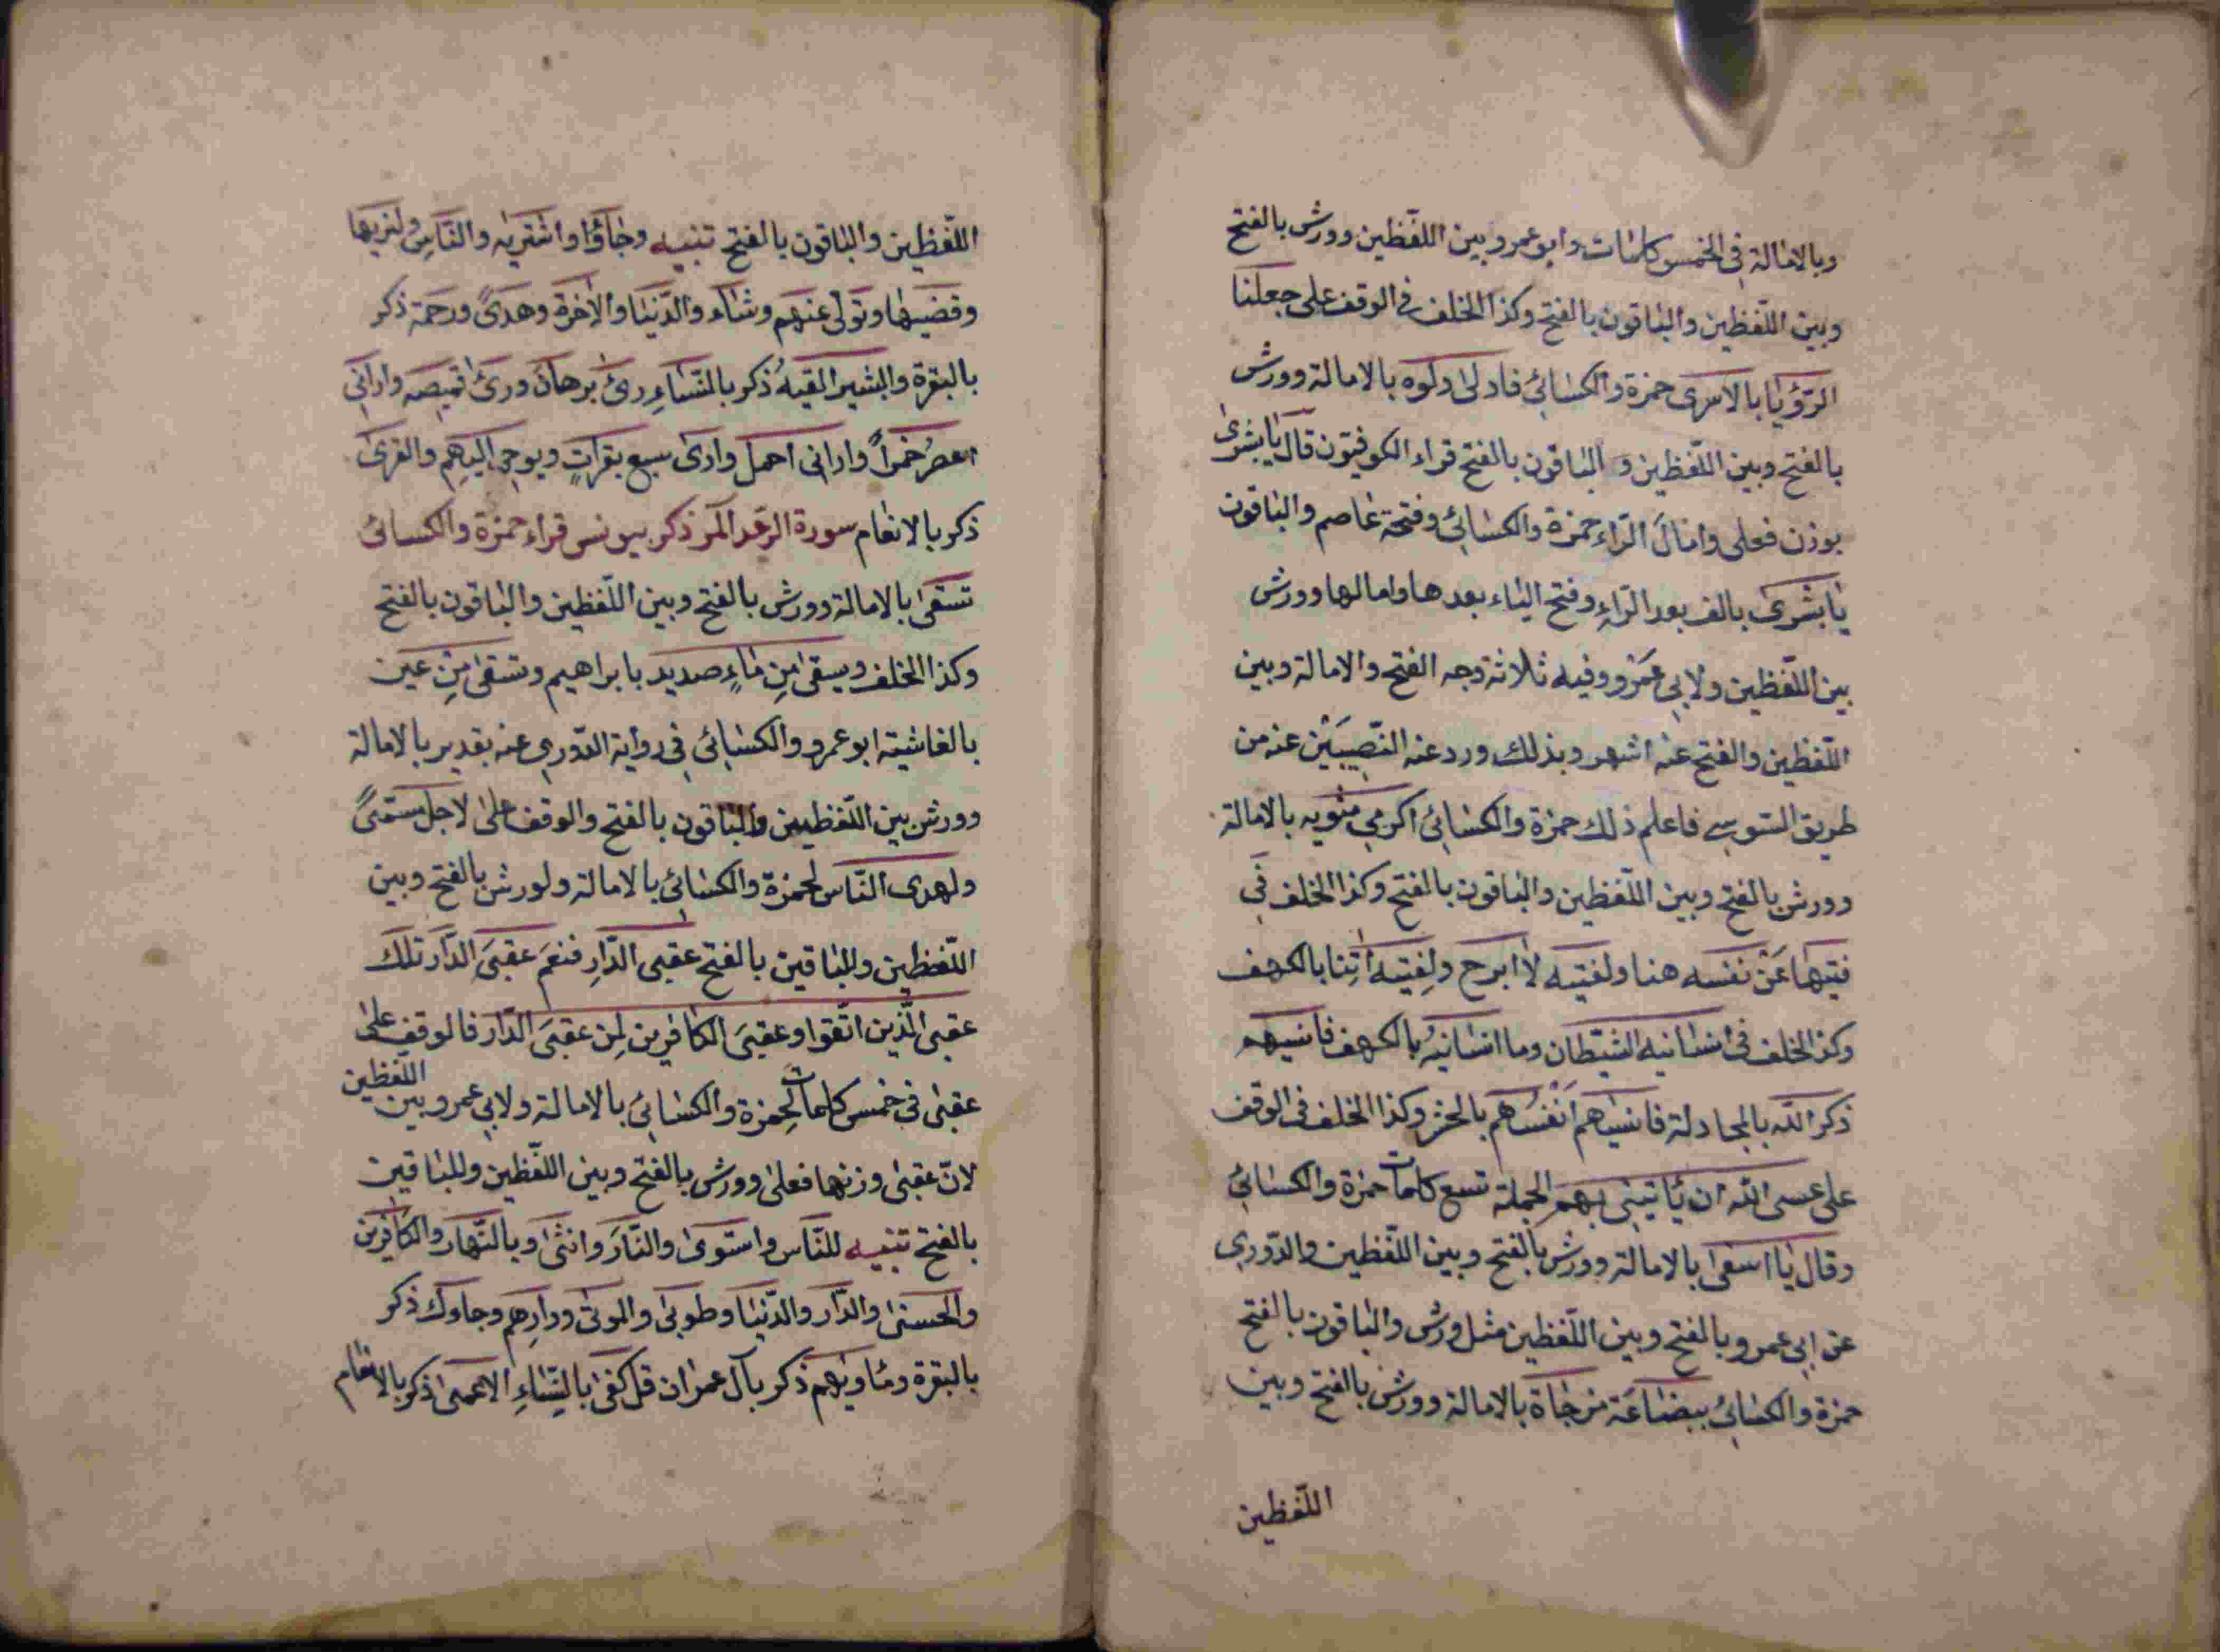 وبالامالة فى الخمس كلمات وابو عمرو بين اللّفظين وورش بالفتح
وبين اللّفظين والباقون بالفتح وكذا الخلف فى الوقف على جعلنا
الرّؤيا بالاسرى حمزة والكسائىّ فادلى دلوه بالامالة وورش
بالفتح وبين اللّفظين و الباقون بالفتح قراء الكوفيّون قال يا بشرى
بوزن فعلى وامال الرّاء حمزة والكسائىّ وفتحه عاصم والباقون
يا بشرىَ بالف بعد الرّاء وفتح الياء بعدها وامالها وورش
بين اللّفظين ولابى عمرو وفيه ثلاثة وجه الفتح والامالة وبين
اللّفظين والفتح عنه اشهر وبذلك ورد عنه النّصيبين عنه من
طريق السّوسى فاعلم ذلك حمزة والكسائىّ اكرمى مثويه بالامالة
وورش بالفتح وبين اللّفظين والباقون بالفتح وكذا الخلف فى
فتيها عَنْ نفسه هنا ولفتيه لا ابرح ولِفتيه آتِنا بالكهف
وكذا الخلف فى انسانيه الشّيطان وما انسانيهُ بالكهف فانسيهم
ذكر اللّه بالمجادلة فانسيهم انفسهم بالحشر وكذا الخلف فى الوقف
على عسى اللّه ان يأتينى بهم الجملة تسع كلمات حمزة والكسائىّ
وقال يا اسفى بالامالة وورش بالفتح وبين اللّفظين والدّورى
عن ابى عمرو بالفتح وبين اللّفظين مثل ورش والباقون بالفتح
حمزة والكسائىّ ببضاعة مزجاة بالامالة وورش بالفتح وبين
اللّفظين
اللّفظين والباقون بالفتح تنبيه وجاؤا واشتريه والنّاس ولنريها
وقضيها وتولّى عنهم وشاء والدّنيا والاخرة وهدىً ورحمة ذكر
بالبقرة والبشير القيهُ ذكر بالنّساءِ رئ برهان ورئ قميصه وارانى
اعصرُ خمراً وارانى احمل وارى سبع بقراتٍ ويوحى اليهِم والقرى
ذكر بالانعام سورة الرّعد المر ذكر بيونس قراء حمزة والكسائى
تسقى بالامالة وورش بالفتح وبين اللّفظين والباقون بالفتح
وكذا الخلف ويسقى مِن ماءٍ صديد بابراهيم وتسقى مِن عين
بالغاشية ابو عمرو والكسائىّ فى رواية الدّورى عنه بقدير بالامالة
وورش بين اللّفظيين والباقون بالفتح والوقف على لاجل مسمّىً
ولهدى النّاس لحمزة والكسائىّ بالامالة ولورش بالفتح وبين
اللّفظين وللباقين بالفتح عقبى الدّارِ فنعم عقبىَ الدّار تلك
عقبى الّذين اتّقوا وعقبىَ الكافرين لِمن عقبىَ الدّار فالوقف على
عقبى فى خمس كلمات لحِمزة والكسائىّ بالامالة ولابى عمرو بين اللّفظين
لانّ عقبى وزنها فعلى وورش بالفتح وبين اللّفظين وللباقين
بالفتح تنبيه للنّاس واستوى والنّار وانثى وبالنّهار والكافرين
والحسنى والدّار والدّنيا وطوبى والموتى ودارِهم وجاوك ذكر
بالبقرة ومأويهم ذكر بآل عمران قل كفى بالنّساءِ الاعمى ذكر بالانعام